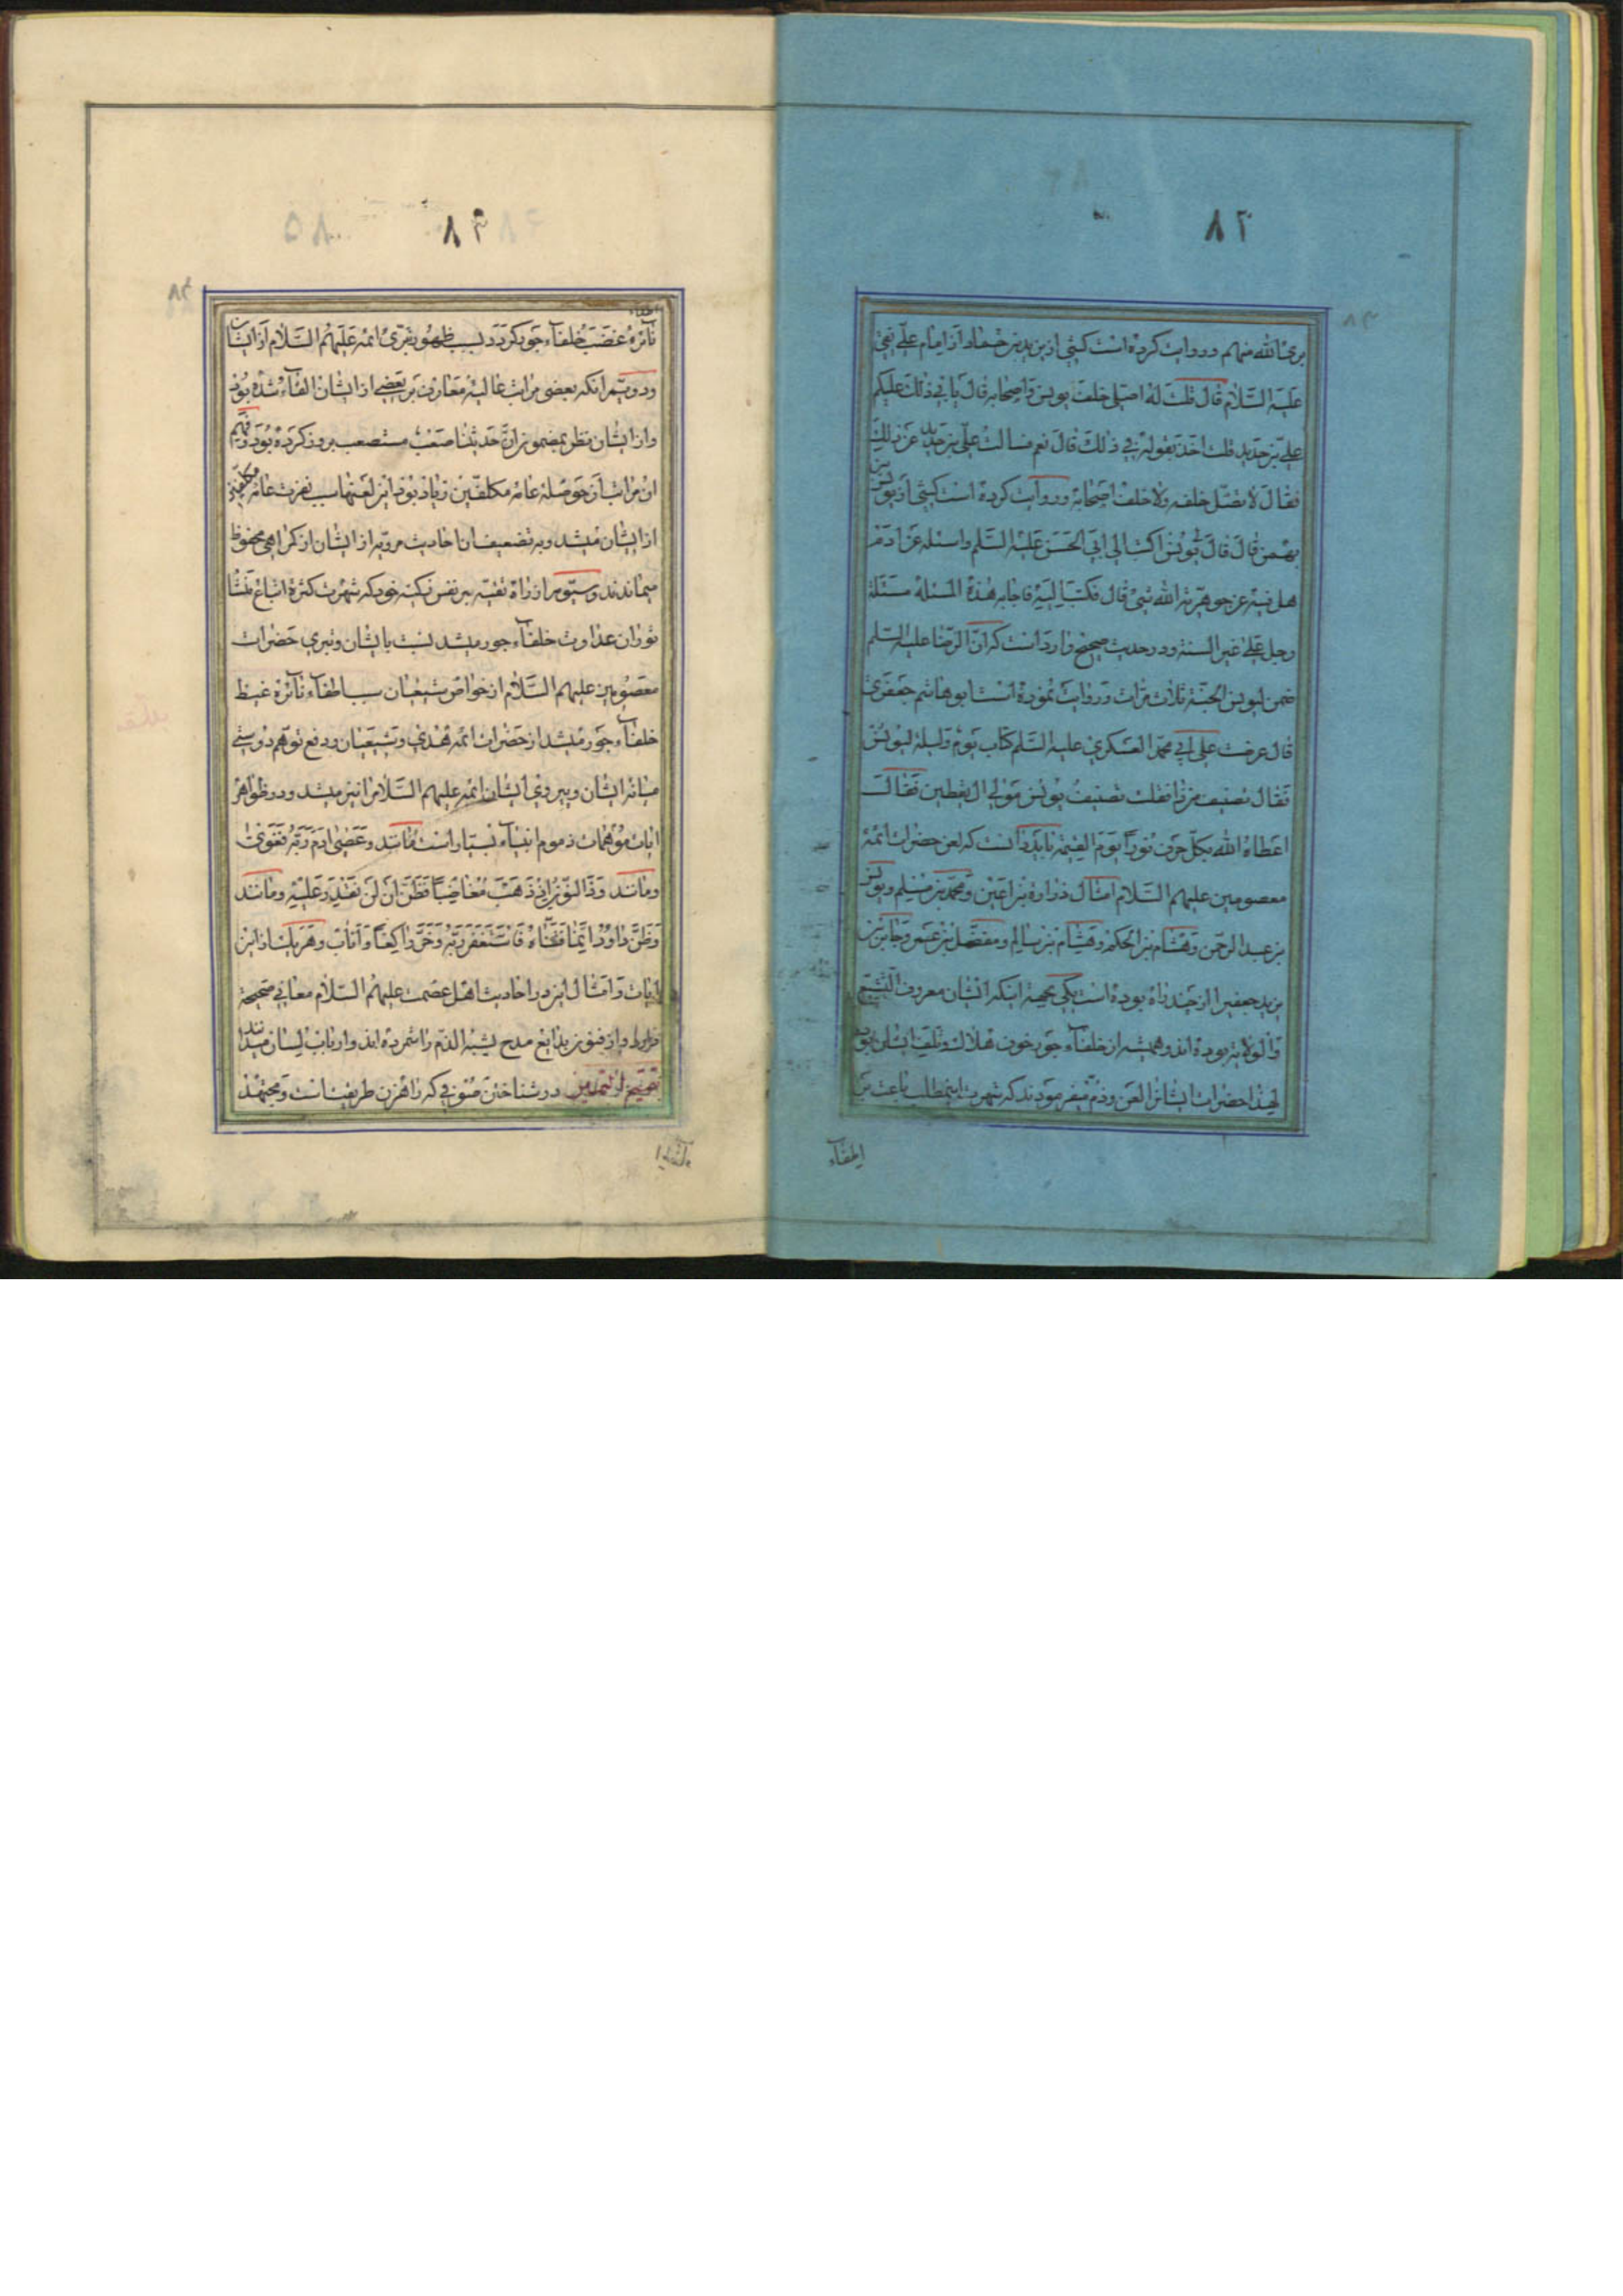 ۸۳
برئ الله منهم و روایت کرده است کشی از یزید بن حماد از امام علی نقی
علیه السلام قال قلت له اصلی خلف یونس و اصحابه قال یابی ذلک علیکم
علی بن حدید قلت اخذ بقوله فی ذلک قال نعم فسالت علی بن حدید عن ذلک
فقال لا تصل خلفه ولا خلف اصحابه و روایت کرده است کشی از یونس بن
بهمن قال قال یونس اکتب الی ابی الحسن علیه السلم واسئله عن ادم
هل فیه من جوهریة الله شیئ قال فکتب الیه فاجابه هذه المسئلة مسئلة
رجل علی غیر السنة و در حدیث صحیح وارد است که ان الرضا علیه السلم
ضمن لیونس الجنة ثلاث مرات و روایت نموده است ابو هاشم جعفری
قال عرضت علی ابی محمد العسکری علیه السلم کتاب یوم ولیلة لیونس
فقال تصنیف من هذا فقلت تصنیف یونس مولی ال یقطین فقال
اعطاه الله بکل حرف نورا یوم القیمة باید دانست که لعن حضرات ائمه
معصومین علیهم السلام امثال زراره بن اعین و محمد بن مسلم و یونس
بن عبد الرحمن و هشام بن الحکم و هشام بن سالم و مفضل بن عمر و جابر بن
یزید جعفی را از چند راه بوده است یکی بجهة اینکه ایشان معروف التشیع
والولایه بوده اند و همیشه از خلفاء جور خوف هلاک و تلف ایشان بود
لهذا حضرات ایشانرا لعن و ذم میفرمودند که شهرت اینمطلب باعث
اطفاء
۸۴
نآئره غضب خلفآء جور کردد بسبب ظهور تبری ائمه علیهم السلام از ایشان
و دویم انکه بعضی مراتب عالیه معارف بر بعضی از ایشان القاء شده بود
و از ایشان نظر بمضمون ان حدیثنا صعب مستصعب بروز کرده بود و فهم
ان مراتب از حوصله عامه مکلفین زیاد بود این لعنها سبب نفرت عامه مکلفین
از ایشان میشد و به تضعیف احادیث مرویه از ایشان از کمراهی محفوظ
میماندند و سیوم از راه تقیه بر نفس زکیه خود که شهرت کثرة اتباع منشا
ثوران عداوت خلفآء جور میشد نسبت بایشان و تبری حضرات
معصومین علیهم السلام از خواص شیعیان سبب اطفآء نآئره غیظ
خلفآء جور میشد از حضرات ائمه هدی و شیعیان و دفع توهم دوستی
میانه ایشان و پیروی ایشان ائمه علیهم السلام را نیز میشد و در ظواهر
ایات موهمات ذموم انبیآء بسیار است مانند و عصی ادم ربه فغوی
و مانند و ذا النون اذ ذهب مغاضبا فظن ان لن نقدر علیه و مانند
و ظن داود انما فتناه فاستغفر ربه و خر راکعا و اناب و هر یک از این
ایات و امثال این در احادیث اهل عصمت علیهم السلام معانی صحیحة
دارد و از فنون بدایع مدح یشبه الذم را شمرده اند و ارباب لسان میدانند
در شناختن فنونی که راهزن طریقند